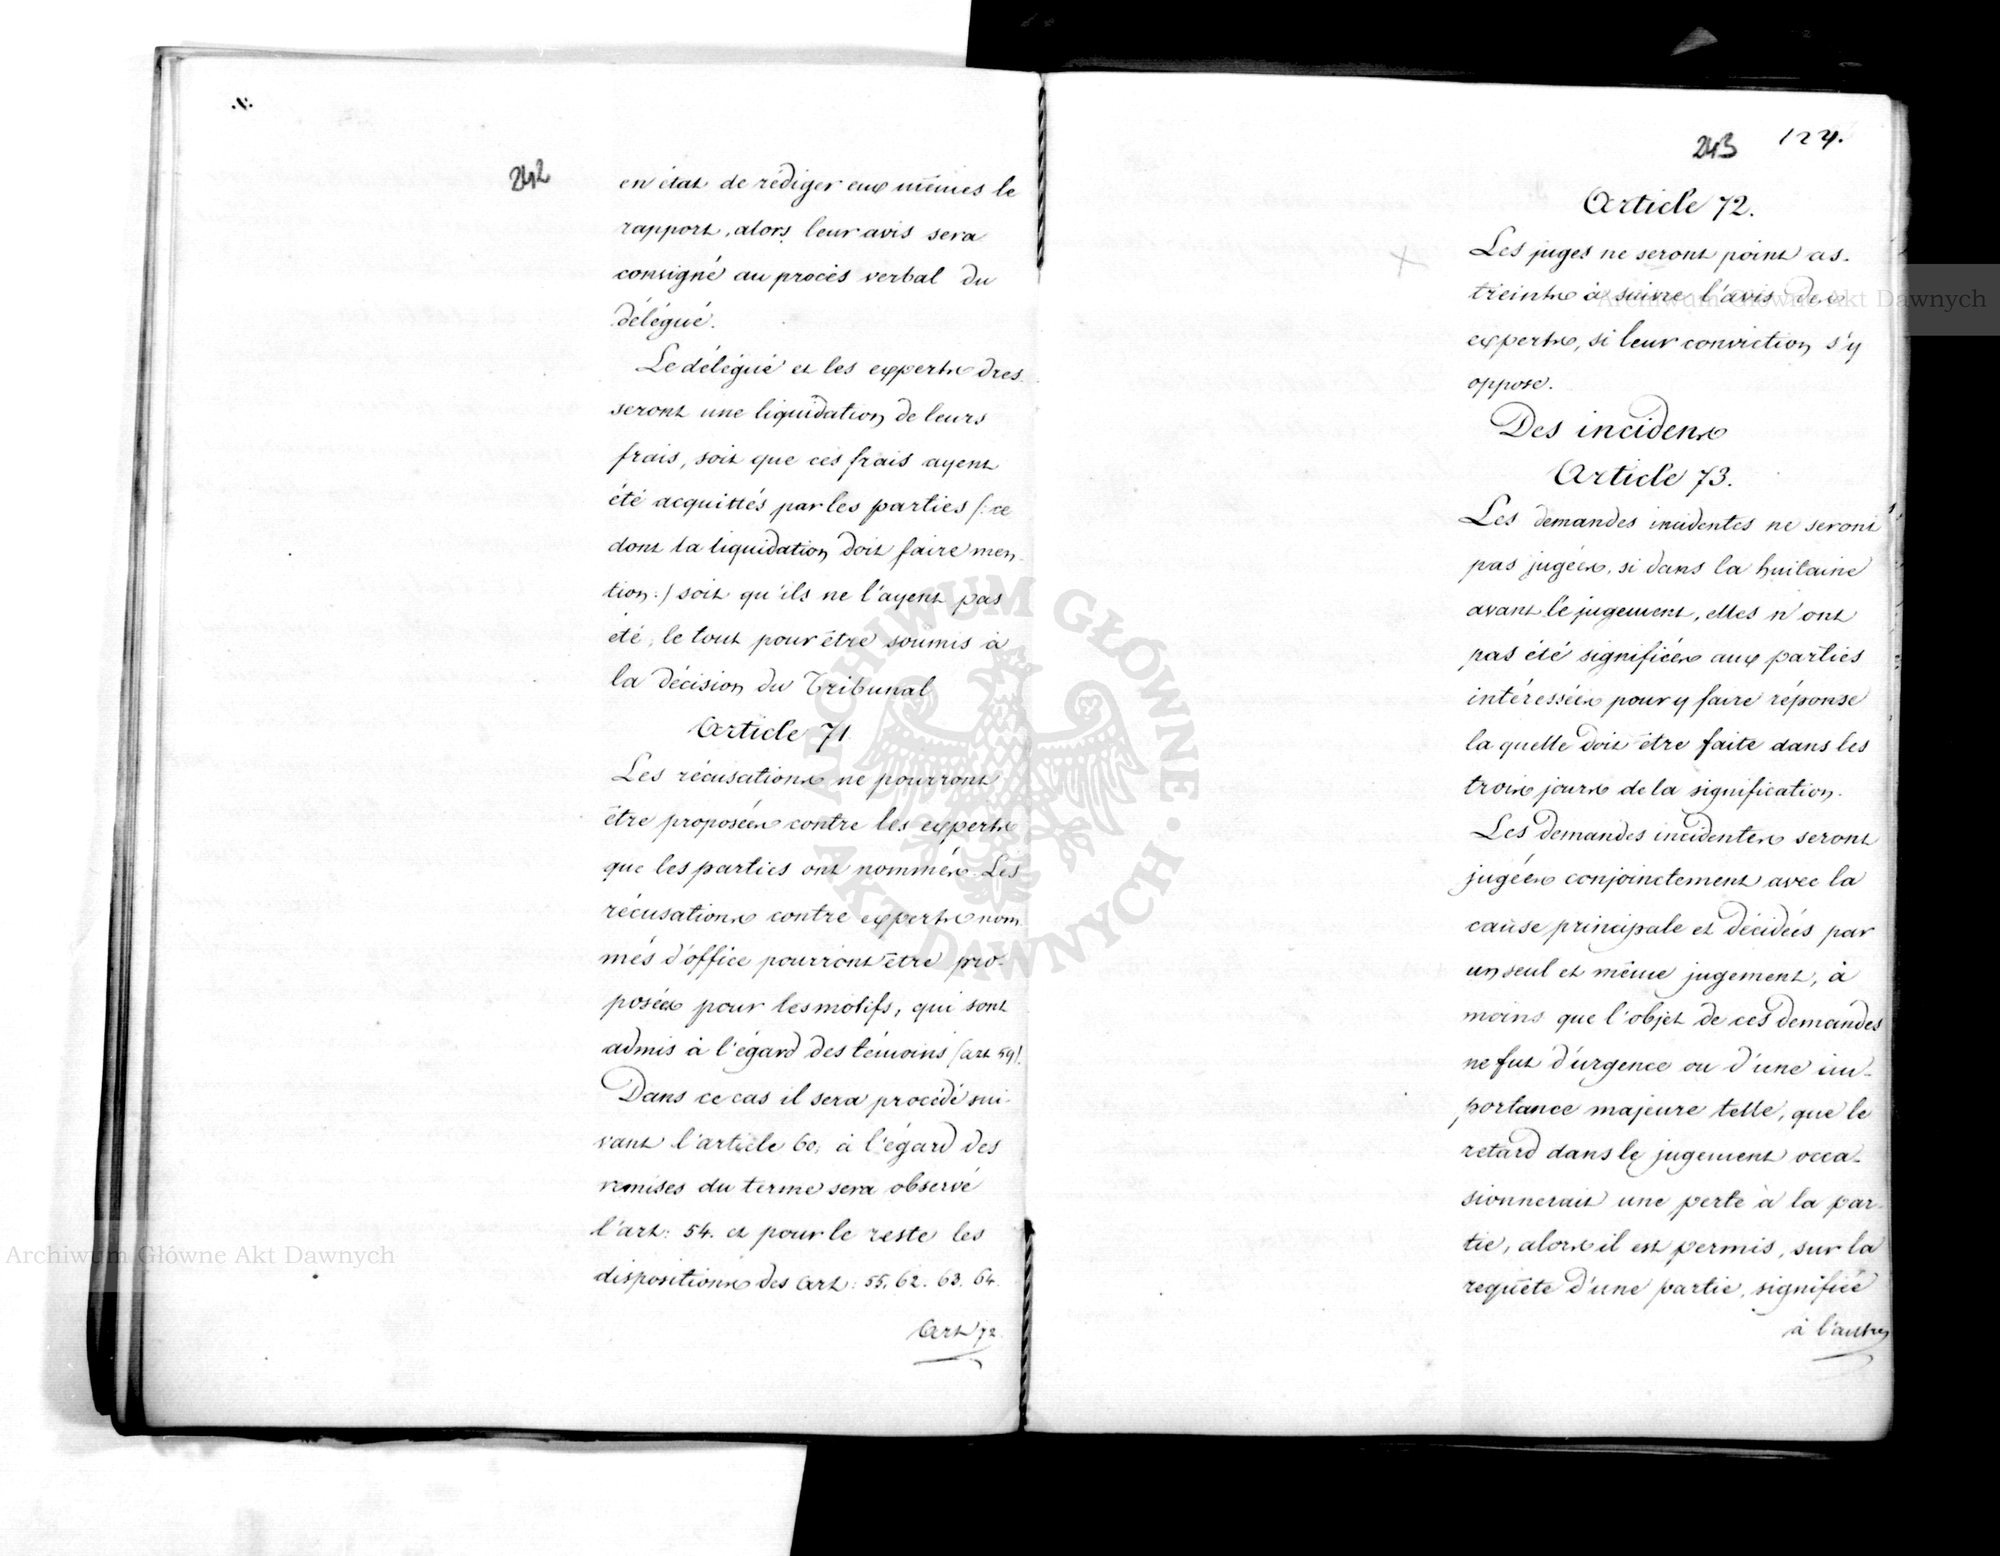 242
en état de rédiger eux mêmes le
rapport, alors leur avis sera
consigné au procès verbal du
délégué.
Le délégué et les experts dres-
seront une liquidation de leurs
frais, soit que ces frais ayent
été acquittés par les parties /: ce
dont la liquidation doit faire men-
tion :/ soit qu'ils ne l'ayent pas
été, le tout pour être soumis à
la décision du Tribunal
Article 71.
Les récusations ne pourront
être proposées contre les experts
que les parties ont nommés. Les
récusations contre experts nom
més d'office pourront être pro-
posées pour les motifs, qui sont
admis à l'égard des témoins (art 59).
Dans ce cas il sera procédé sui-
vant l'article 60, à l'égard des
remises du terme sera observé
l'art: 54. et pour le reste les
dispositions des Art: 55. 62. 63. 64.
Art 72.
243 124.
Article 72.
Les juges ne seront point as-
treints à suivre l'avis des
experts, si leur conviction s'y
oppose.
Des incidens
Article 73.
Les demandes incidentes ne seront
pas jugées, si dans la huitaine
avant le jugement, elles n'ont
pas été signifiées aux parties
intéressées pour y faire réponse
la quelle doit être faite dans les
trois jours de la signification.
Les demandes incidentes seront
jugées conjoinctement avec la
cause principale et décidées par
un seul et même jugement, à
moins que l'objet de ces demandes
ne fut d'urgence ou d'une im-
portance majeure telle, que le
retard dans le jugement occa-
sionnerait une perte à la par-
tie, alors il est permis, sur la
requête d'une partie, signifiée
à l'autre
Archiwum Główne Akt Dawnych
Archiwum Główne Akt Dawnych
ARCHIWUM GŁÓWNE · AKT DAWNYCH ·